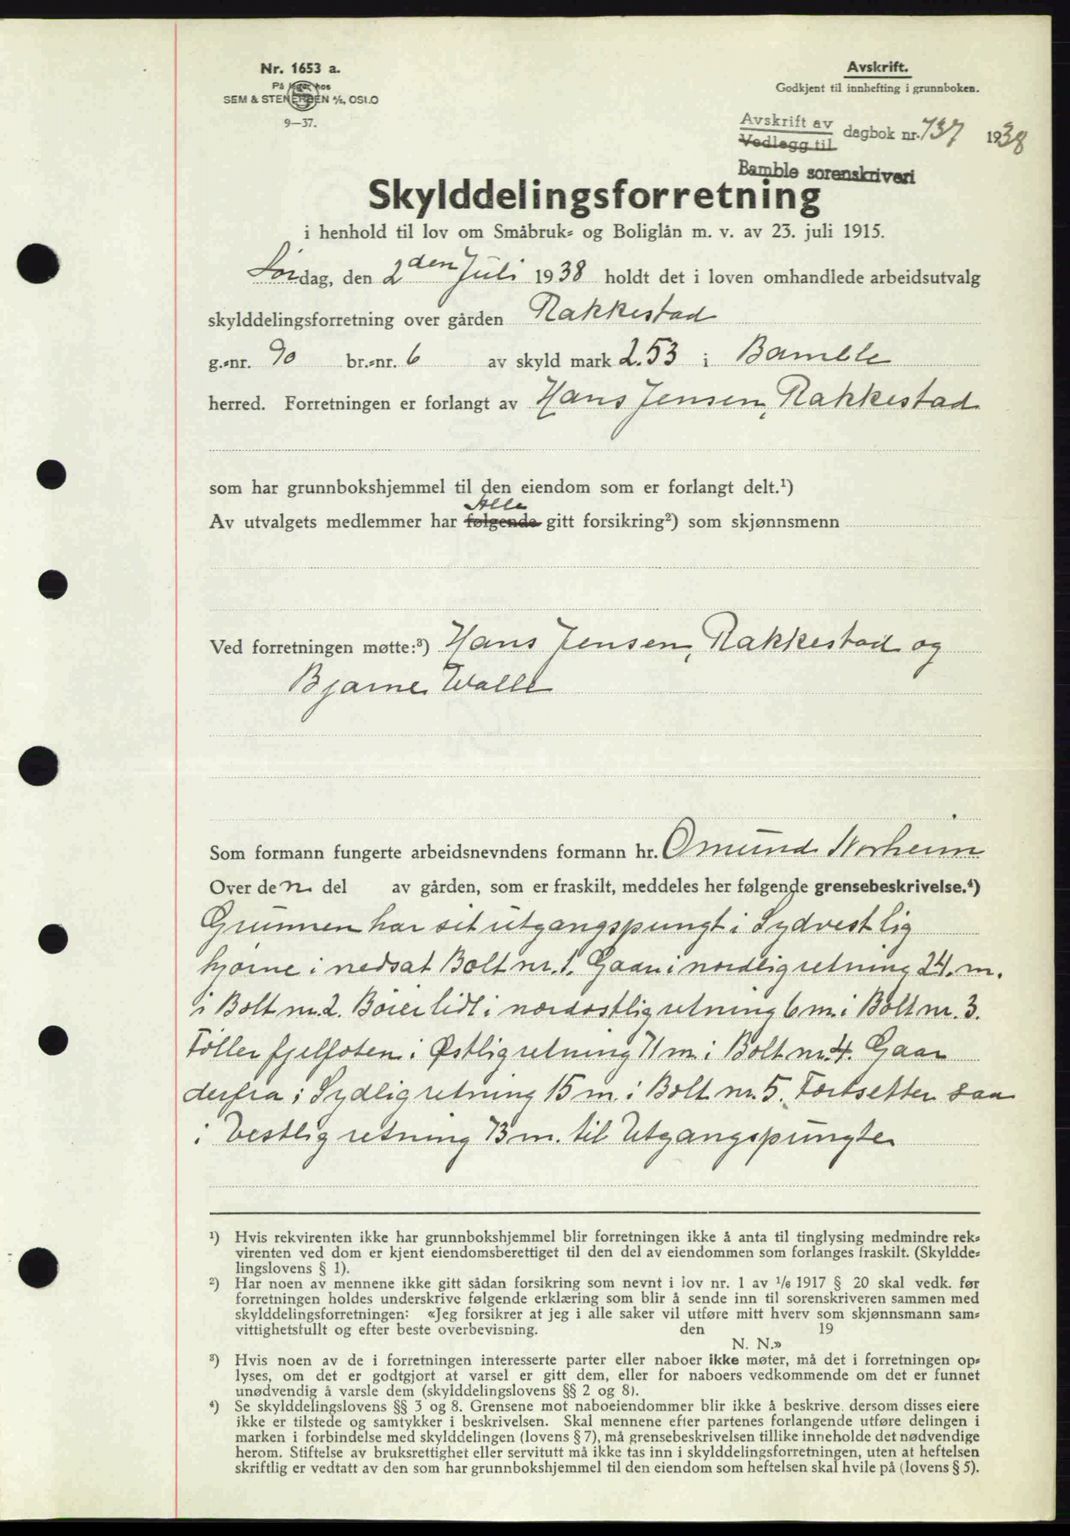 Nr. 1653 a.
På lager hos
SEM & STENERSEN A/S, OSLO
9—37.
Avskrift.
Godkjent til innhefting i grunnboken.
Avskrift av
Vedlegg til
dagbok nr. 737 1938
Bamble sorenskriveri
Skylddelingsforretning
i henhold til lov om Småbruk- og Boliglån m. v. av 23. juli 1915.
Lørdag, den 2den Juli 1938 holdt det i loven omhandlede arbeidsutvalg
skylddelingsforretning over gården Rakkestad
g.-nr. 90 br.-nr. 6 av skyld mark 2.53 i Bamble
herred. Forretningen er forlangt av Hans Jensen, Rakkestad
som har grunnbokshjemmel til den eiendom som er forlangt delt.¹)
Alle
Av utvalgets medlemmer har følgende gitt forsikring²) som skjønnsmenn
Ved forretningen møtte:³) Hans Jensen, Rakkestad og
Bjarne Walle
Som formann fungerte arbeidsnevndens formann hr. Omund Norheim
Over den del av gården, som er fraskilt, meddeles her følgende grensebeskrivelse.⁴)
Grunnen har sit utgangspungt i Sydvestlig
hjørne i nedsat Bolt nr. 1. Gaar i nordlig retning 24. m.
i Bolt nr. 2. Bøier lidt i nordostlig retning 6 m. i Bolt nr. 3.
Føller fjelfoten i Østlig retning 71 m. i Bolt nr. 4. Gaar
derfra i Sydlig retning 15 m. i Bolt nr. 5. Fortsetter saa
i Vestlig retning 73 m. til Utgangspungter
¹) Hvis rekvirenten ikke har grunnbokshjemmel blir forretningen ikke å anta til tinglysing medmindre rek-
virenten ved dom er kjent eiendomsberettiget til den del av eiendommen som forlanges fraskilt. (Skyldde-
lingslovens § 1).
²) Har noen av mennene ikke gitt sådan forsikring som nevnt i lov nr. 1 av 1/6 1917 § 20 skal vedk. før
forretningen holdes underskrive følgende erklæring som blir å sende inn til sorenskriveren sammen med
skylddelingsforretningen: «Jeg forsikrer at jeg i alle saker vil utføre mitt hverv som skjønnsmann sam-
vittighetsfullt og efter beste overbevisning. den 19
N. N.»
³) Hvis noen av de i forretningen interesserte parter eller naboer ikke møter, må det i forretningen op-
lyses, om det er godtgjort at varsel er gitt dem, eller for naboers vedkommende om det er funnet
unødvendig å varsle dem (skylddelingslovens §§ 2 og 8).
⁴) Se skylddelingslovens §§ 3 og 8. Grensene mot naboeiendommer blir ikke å beskrive, dersom disses eiere
ikke er tilstede og samtykker i beskrivelsen. Skal mennene efter partenes forlangende utføre delingen i
marken i forbindelse med skylddelingen (lovens § 7), må grensebeskrivelsen tillike inneholde det nødvendige
herom. Stiftelse av bruksrettighet eller servitutt må ikke tas inn i skylddelingsforretningen, uten at heftelsen
skriftlig er vedtatt av den som har grunnbokshjemmel til den eiendom som heftelsen skal hvile på (lovens § 5).